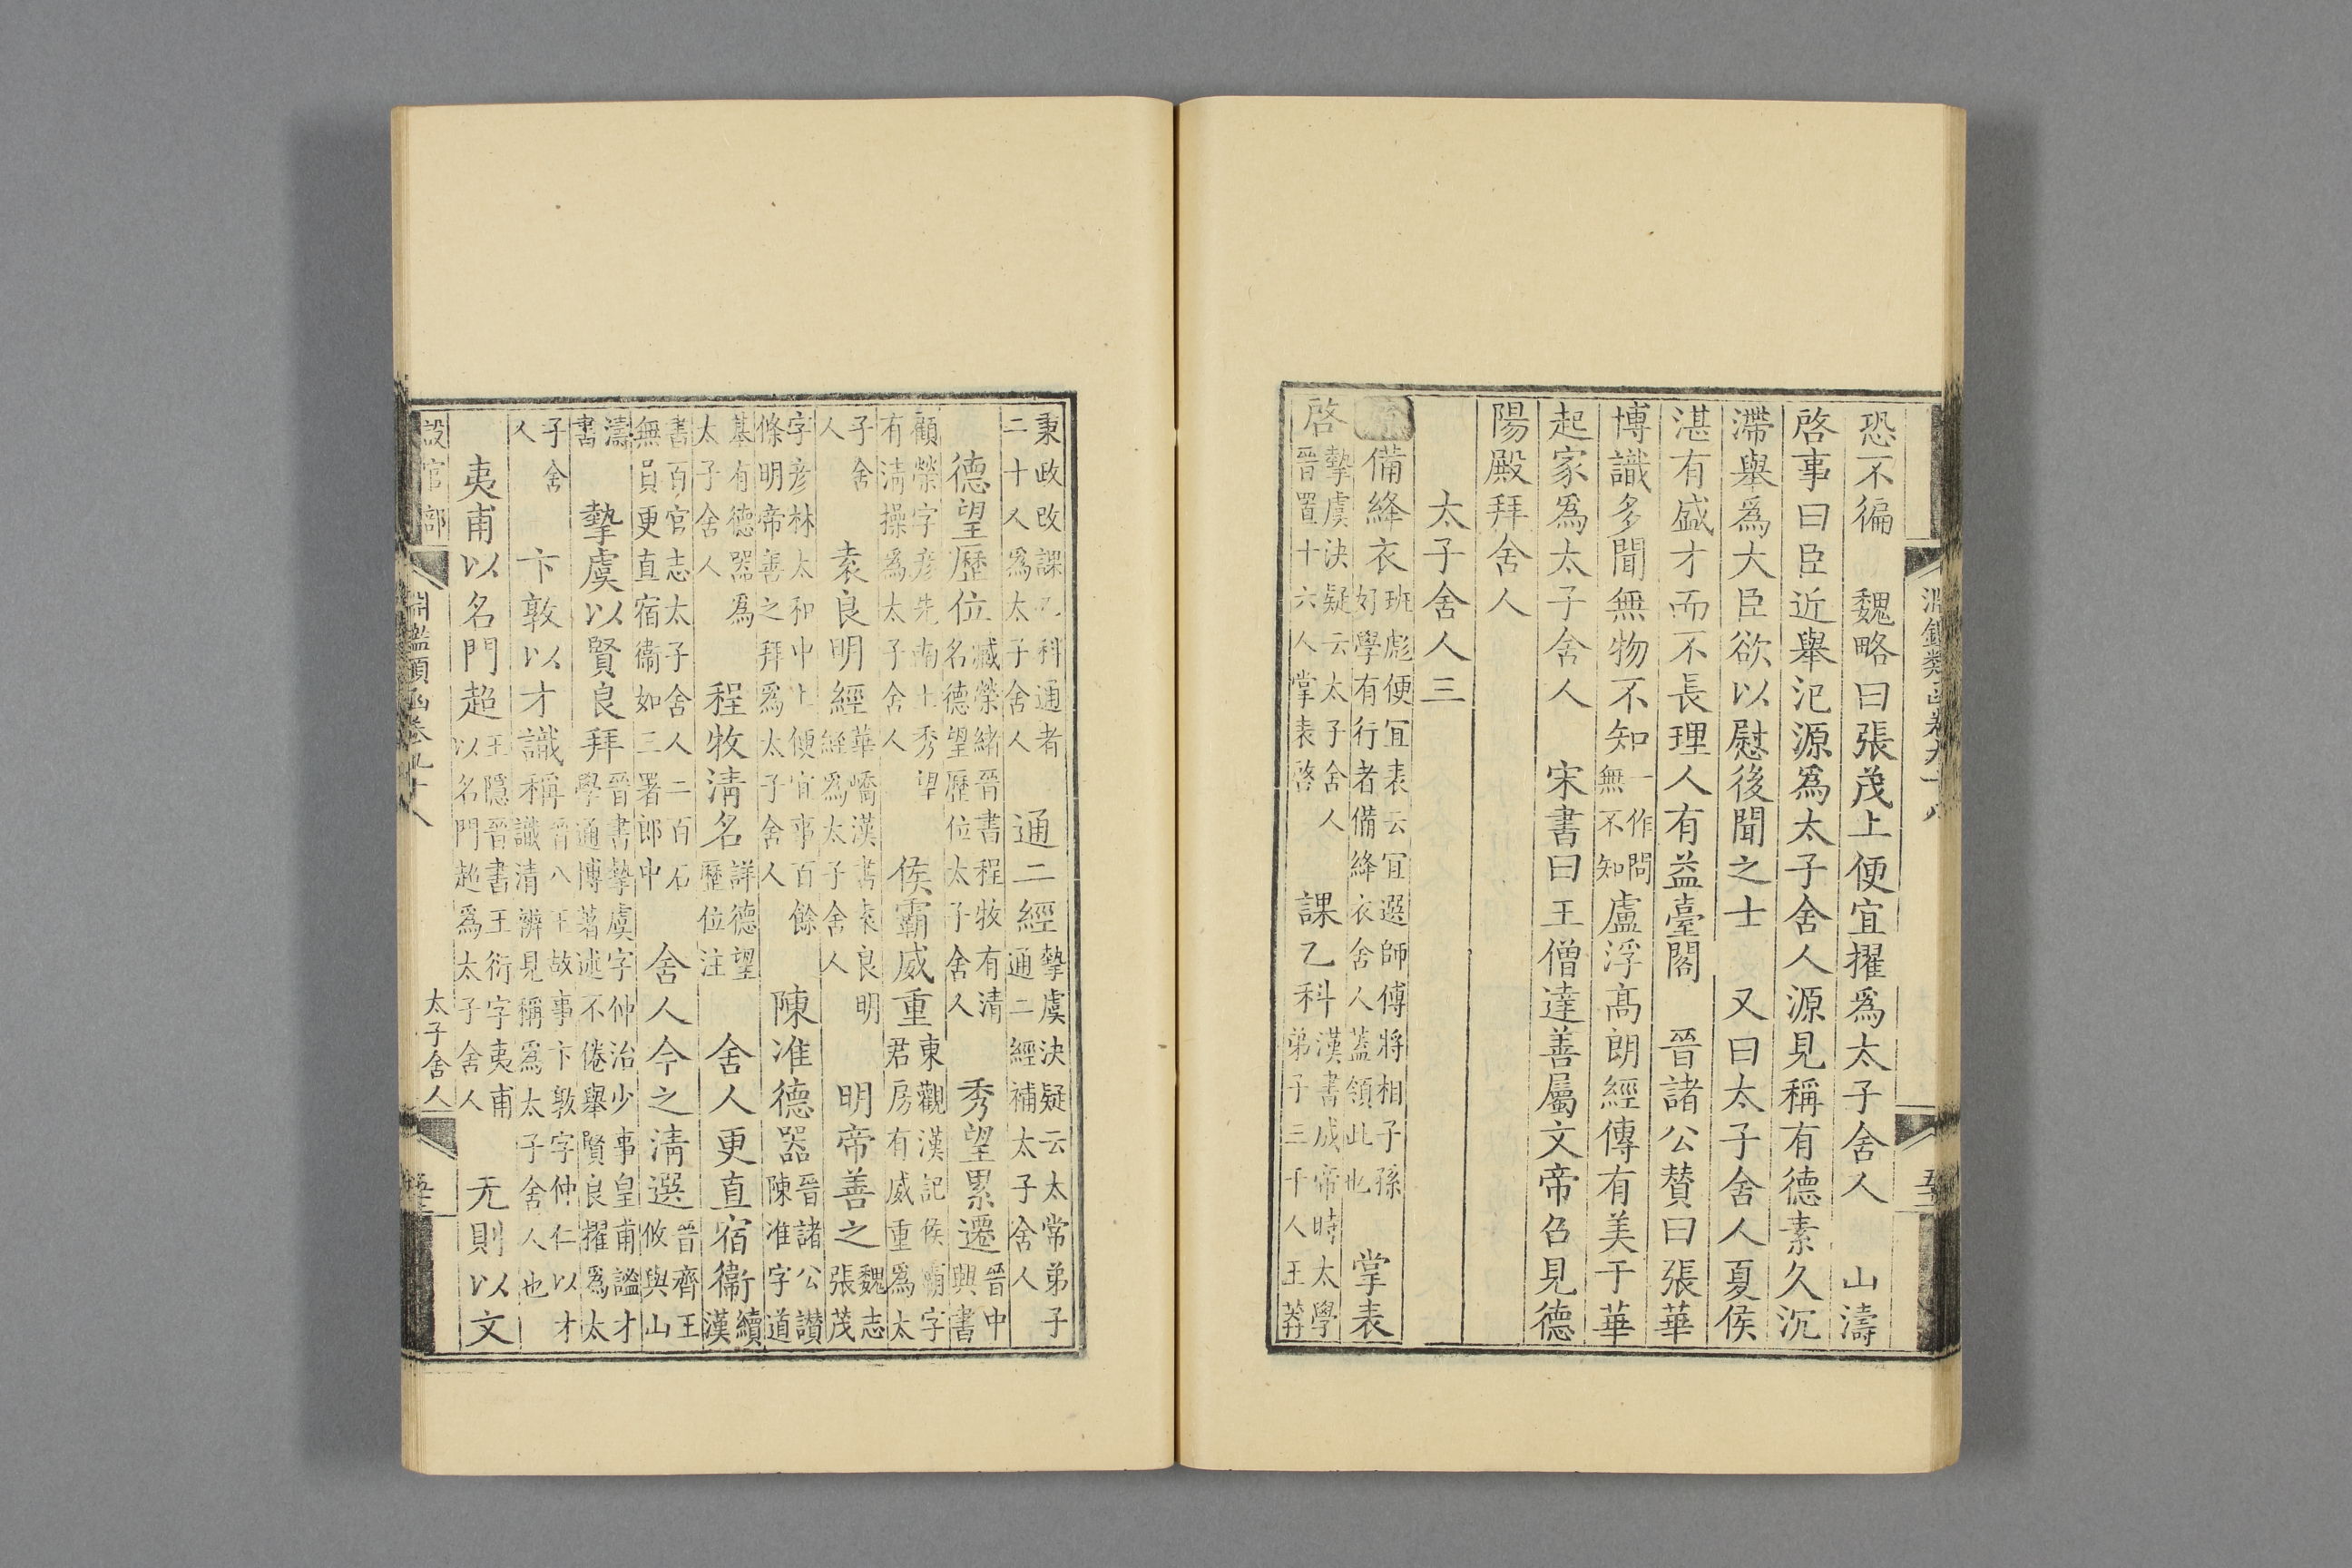 恐不徧　魏略曰張茂上便宜擢爲太子舍人　山濤
啓事曰臣近舉氾源爲太子舍人源見稱有德素久沉
滯舉爲大臣欲以慰後聞之士　又曰太子舍人夏侯
湛有盛才而不長理人有益臺閣　晉諸公賛曰張華
博識多聞無物不知一作問無不知盧浮高朗經傳有美于華
起家爲太子舍人　宋書曰王僧達善屬文帝召見德
陽殿拜舍人
太子舍人三
備絳衣班彪便宜表云宜選師傅將相子孫好學有行者備絳衣舍人蓋領此也　掌表
啓摯虞決疑云太子舍人晉置十六人掌表啓　課乙科漢書成帝時太學弟子三千人王莽
秉政改課乙科通者二十人爲太子舍人　通二經摯虞決疑云太常弟子通二經補太子舍人
德望歷位臧榮緒晉書程牧有清名德望歷位太子舍人　秀望累遷晉中興書
顧榮字彥先南土秀望有清操爲太子舍人　侯霸威重東觀漢記侯霸字君房有威重爲太
子舍人　袁良明經華嶠漢書袁良明經爲太子舍人　明帝善之魏志張茂
字彥林太和中上便宜事百餘條明帝善之拜爲太子舍人　陳准德器晉諸公讚陳准字道
基有德器爲太子舍人　程牧清名詳德望歷位注　舍人更直宿衞續漢
書百官志太子舍人二百石無員更直宿衞如三署郎中　舍人今之清選晉齊王攸與山
濤書　摯虞以賢良拜晉書摯虞字仲治少事皇甫謐才學通博著述不倦舉賢良擢爲太
子舍人　卞敦以才識稱晉八王故事卞敦字仲仁以才識清辨見稱爲太子舍人也
夷甫以名門超王隱晉書王衍字夷甫以名門超爲太子舍人　无則以文
設官部
淵鑑類函卷九十八
太子舍人